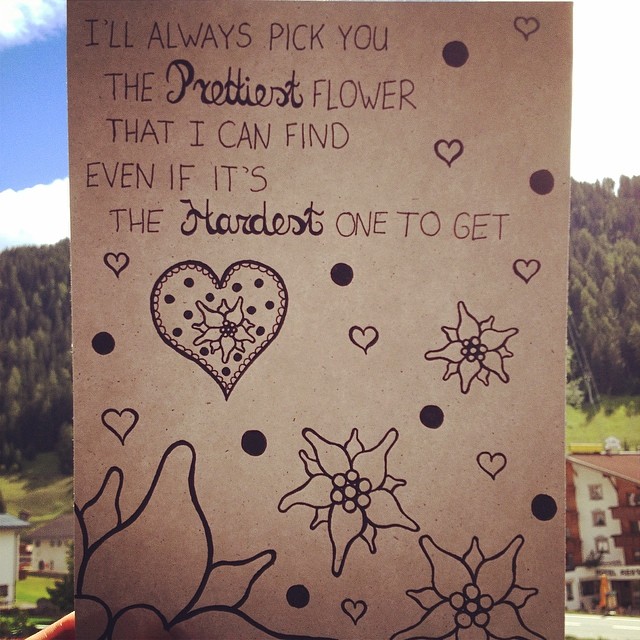 I'LL ALWAYS PICK YOU
THE Prettiest FLOWER
THAT I CAN FIND
EVEN IF IT'S
THE Hardest ONE TO GET